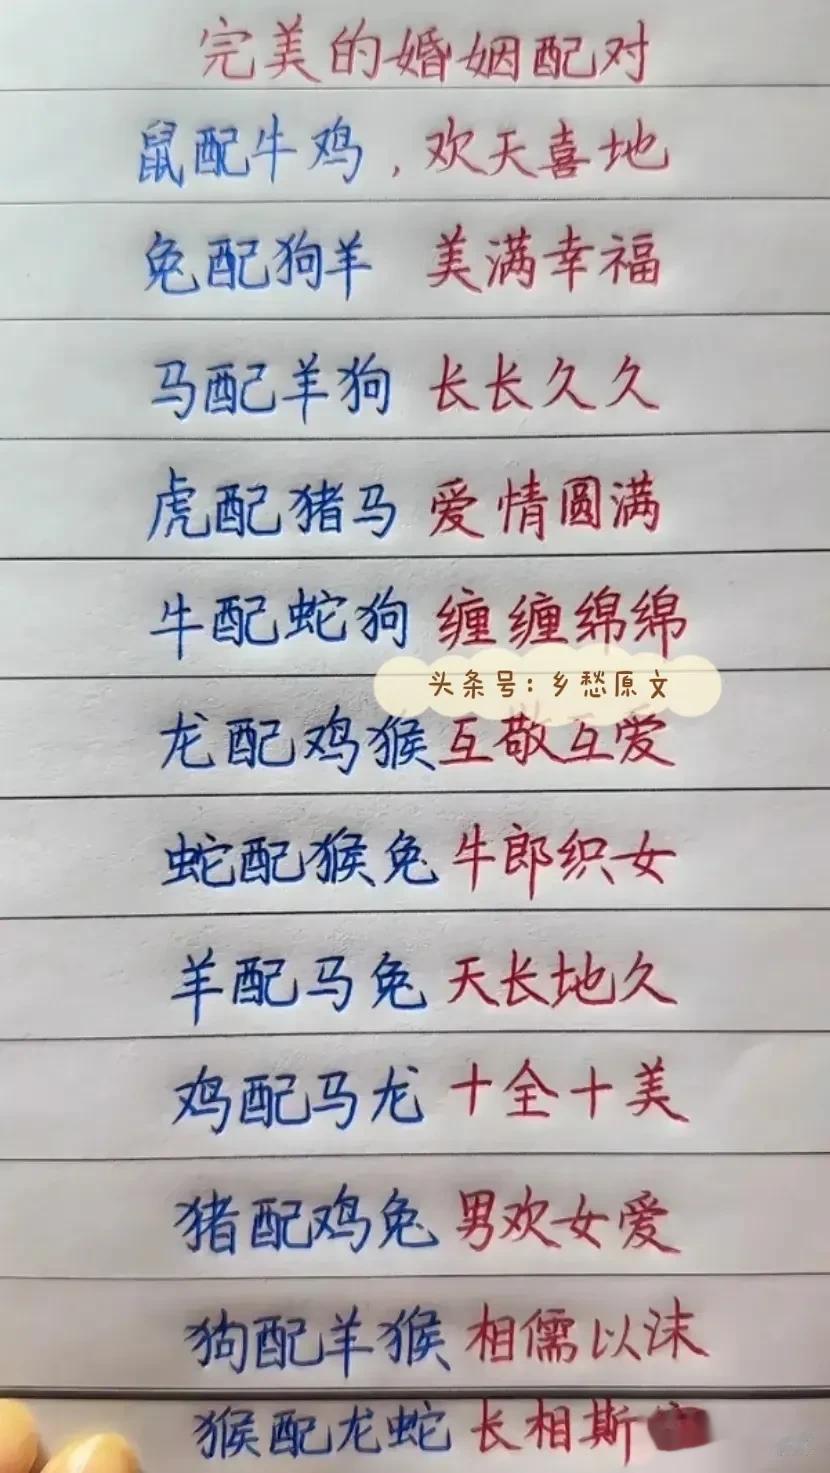 完美的婚姻配对
鼠配牛鸡,欢天喜地
兔配狗羊 美满幸福
马配羊狗 长长久久
虎配猪马 爱情圆满
牛配蛇狗 缠缠绵绵
头条号:乡愁原文
龙配鸡猴互敬互爱
蛇配猴兔牛郎织女
羊配马兔天长地久
鸡配马龙十全十美
猪配鸡兔男欢女爱
狗配羊猴相儒以沫
猴配龙蛇长相斯